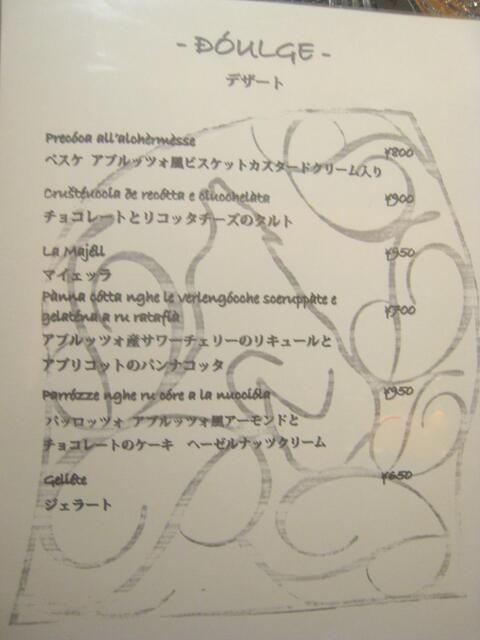 - DÓULGE -
デザート
Precóca all'alchèrmèsse ¥800
ペスケ アブルッツォ風ビスケットカスタードクリーム入り
Crušténcola de recótta e cluochelàta ¥900
チョコレートとリコッタチーズのタルト
La Majéll ¥950
マイェッラ
Pànna cótta nghe le verlengócche sceruppàte e ¥700
gelaténa a ru ratafià
アブルッツォ産サワーチェリーのリキュールと
アプリコットのパンナコッタ
Parrózze nghe ru córe a la nucclóla ¥950
パッロッツォ アブルッツォ風アーモンドと
チョコレートのケーキ ヘーゼルナッツクリーム
Gelléte ¥650
ジェラート